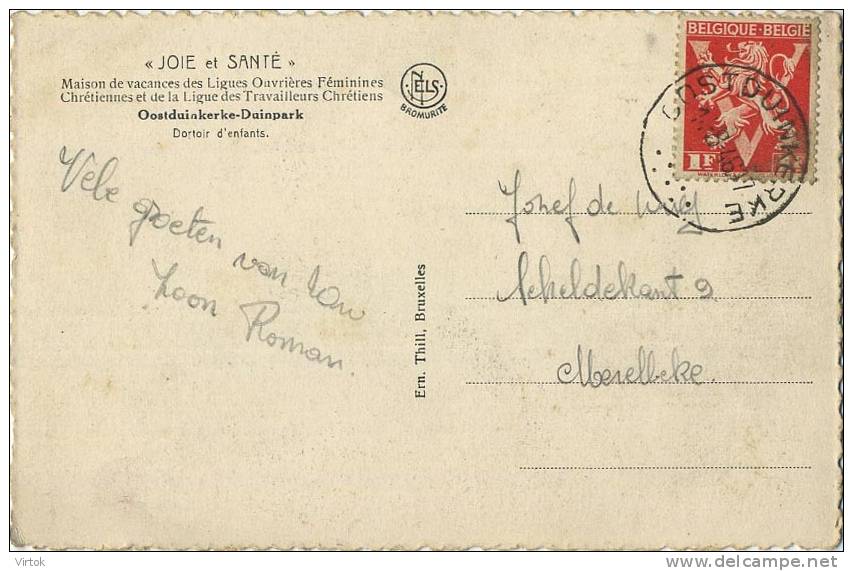 « JOIE et SANTÉ »
Maison de vacances des Ligues Ouvrières Féminines
Chrétiennes et de la Ligue des Travailleurs Chrétiens
Oostduinkerke-Duinpark
Dortoir d'enfants.
NELS
BROMURITE
BELGIQUE-BELGIE
1F
OOSTDUINKERKE
Vele groeten van
zoon Roman.
Ern. Thill, Bruxelles
Jozef de
Scheldekant 9
Merelbeke
Virtok
www.delcampe.net